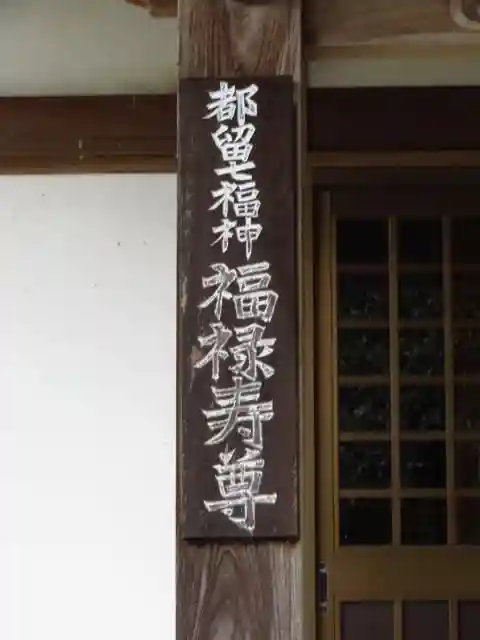 都留七福神福禄寿尊